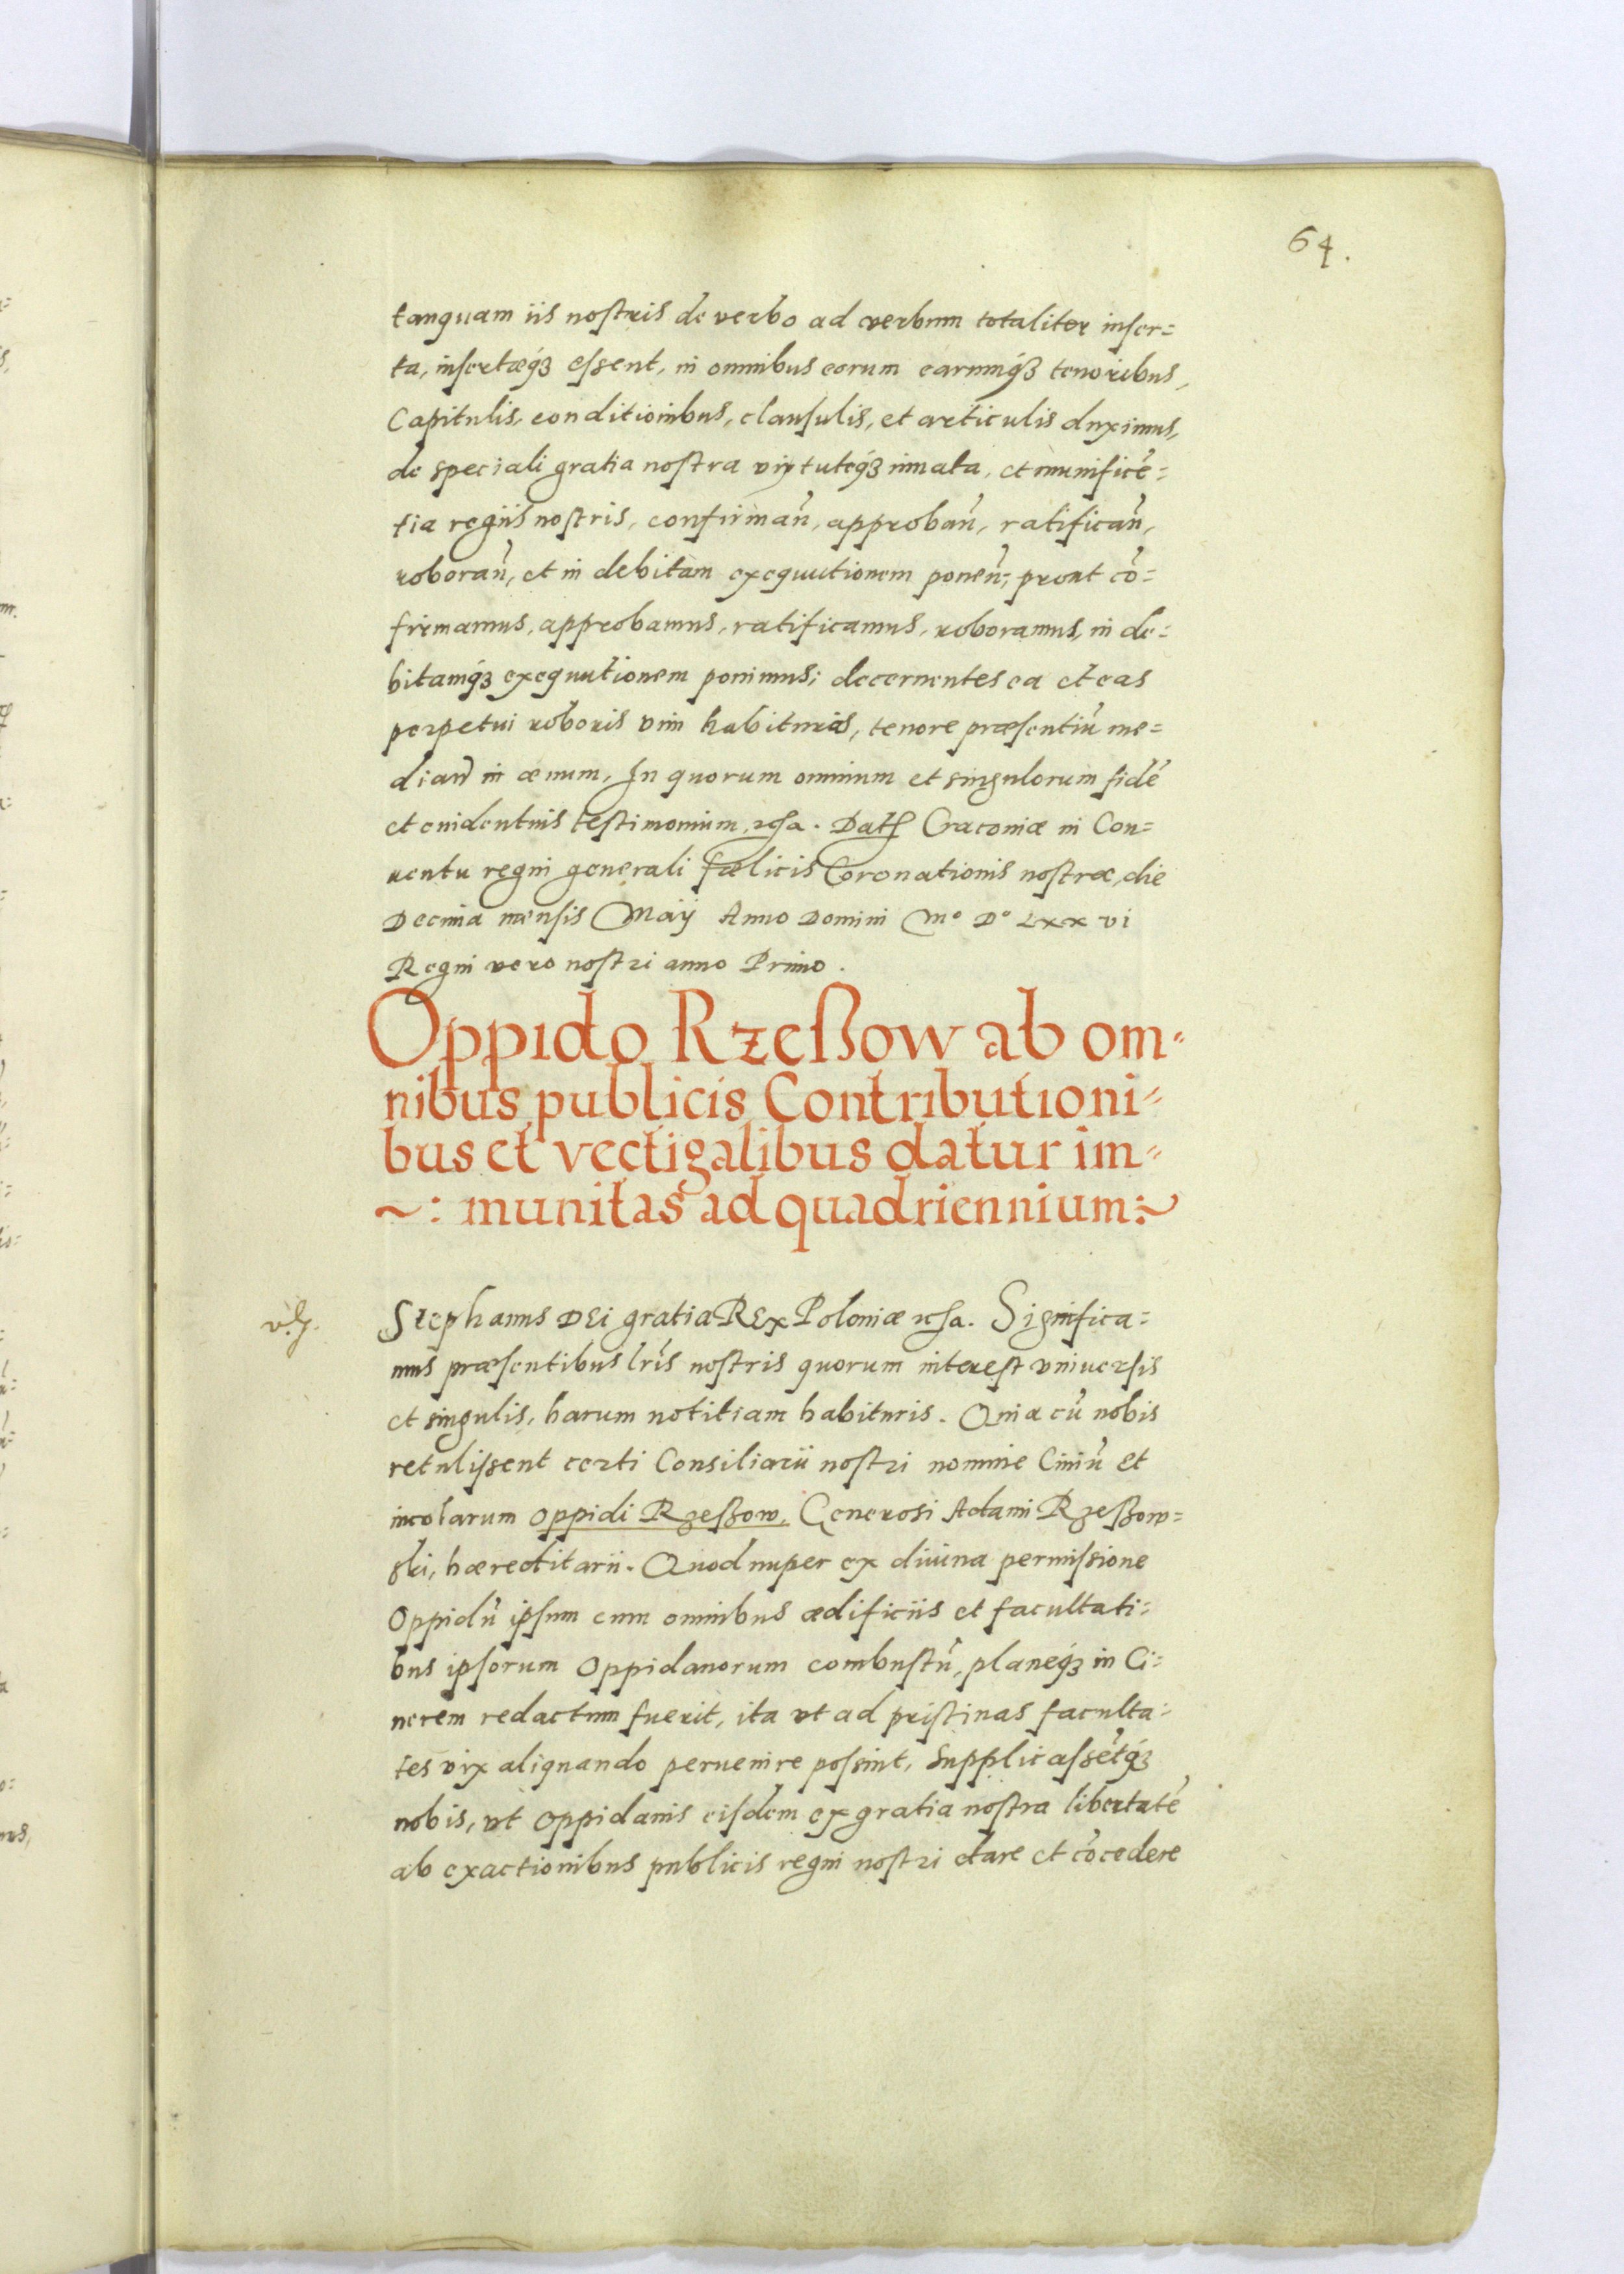 64.
tanquam iis nostris de verbo ad verbum totaliter inser=
ta, insertæq́ꝫ essent, in omnibus eorum earumq́ꝫ tenoribus,
Capitulis, conditionibus, clausulis, et articulis duximus,
de speciali gratia nostra virtuteq́ꝫ innata, et munificē=
tia regiis nostris, confirmañ, approbañ, ratificañ,
roborañ, et in debitam exequutionem poneñ; prout cō=
firmamus, approbamus, ratificamus, roboramus, in de=
bitamq́ꝫ exequutionem ponimus; decernentes ea et eas
perpetui roboris vim habituras, tenore præsentiū me=
diañ in æuum. In quorum omnium et singulorum fidē
et euidentius testimonium, ꝛcſa. Datꝭ Cracouiæ in Con=
uentu regni generali fælicis Coronationis nostræ, die
Decima mensis Maij Anno Domini Mº Dº LXX VI
Regni vero nostri anno Primo.
Oppido Rzeßow ab om=
nibus publicis Contributioni=
bus et vectigalibus datur im=
~: munitas ad quadriennium:~
Stephanus DEi gratia REx Poloniæ ꝛcſa. Significa=
mus præsentibus lr̃is nostris quorum interest vniuersis
et singulis, harum notitiam habituris. Quia cū nobis
retulissent certi Consiliarii nostri nomine Ciuiū et
incolarum oppidi Rzeßow, Generosi Adami Rzeßow=
ski, hæreditarii. Quod nuper ex diuina permissione
Oppidū ipsum cum omnibus ædificiis et facultati=
bus ipsorum Oppidanorum combustū, planeq́ꝫ in Ci=
nerem redactum fuerit, ita vt ad pristinas faculta=
tes vix aliquando peruenire possint, Supplicassētq́ꝫ
nobis, vt oppidanis eisdem ex gratia nostra libertatē
ab exactionibus publicis regni nostri dare et cōcedere